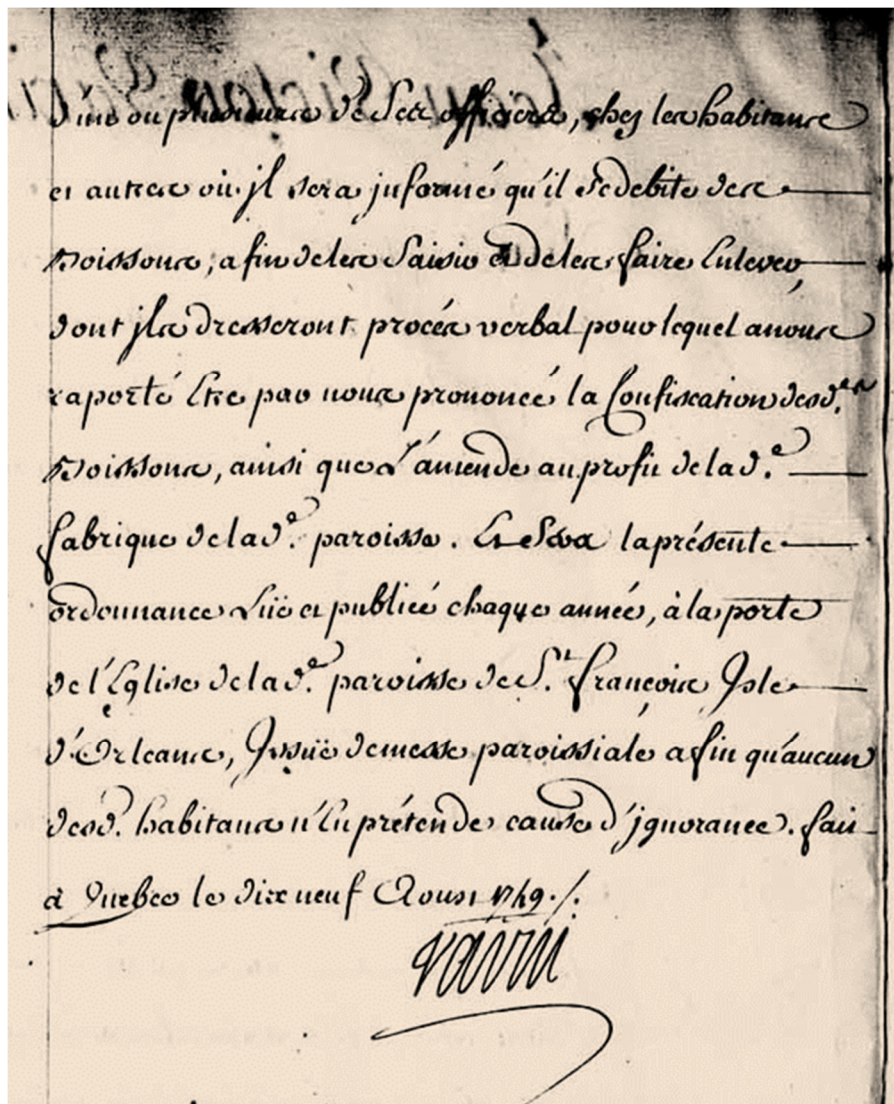 d'un ou plusieurs de Ses officiers, chez les habitans
et autres où jl sera jnformé qu'il Se debite des
Boissons, afin de les Saisir et de les faire Enlever,
dont jls dresseront procés verbal pour lequel a nous
raporté Etre par nous prononcé la Confiscation desd.es
Boissons, ainsi que L'amende au profit de lad.e
fabrique de lad.e paroisse. Et Sera la présente
ordonnance Lüe et publieé chaque année, à la porte
de l'Eglise de lad.e paroisse de S.t françois Isle
d'Orleans, Issüe de messe paroissiale afin qu'aucun
desd. habitans n'En prétende cause d'jgnorance. fait
à Quebec le dix neuf Aoust 1749 ./.